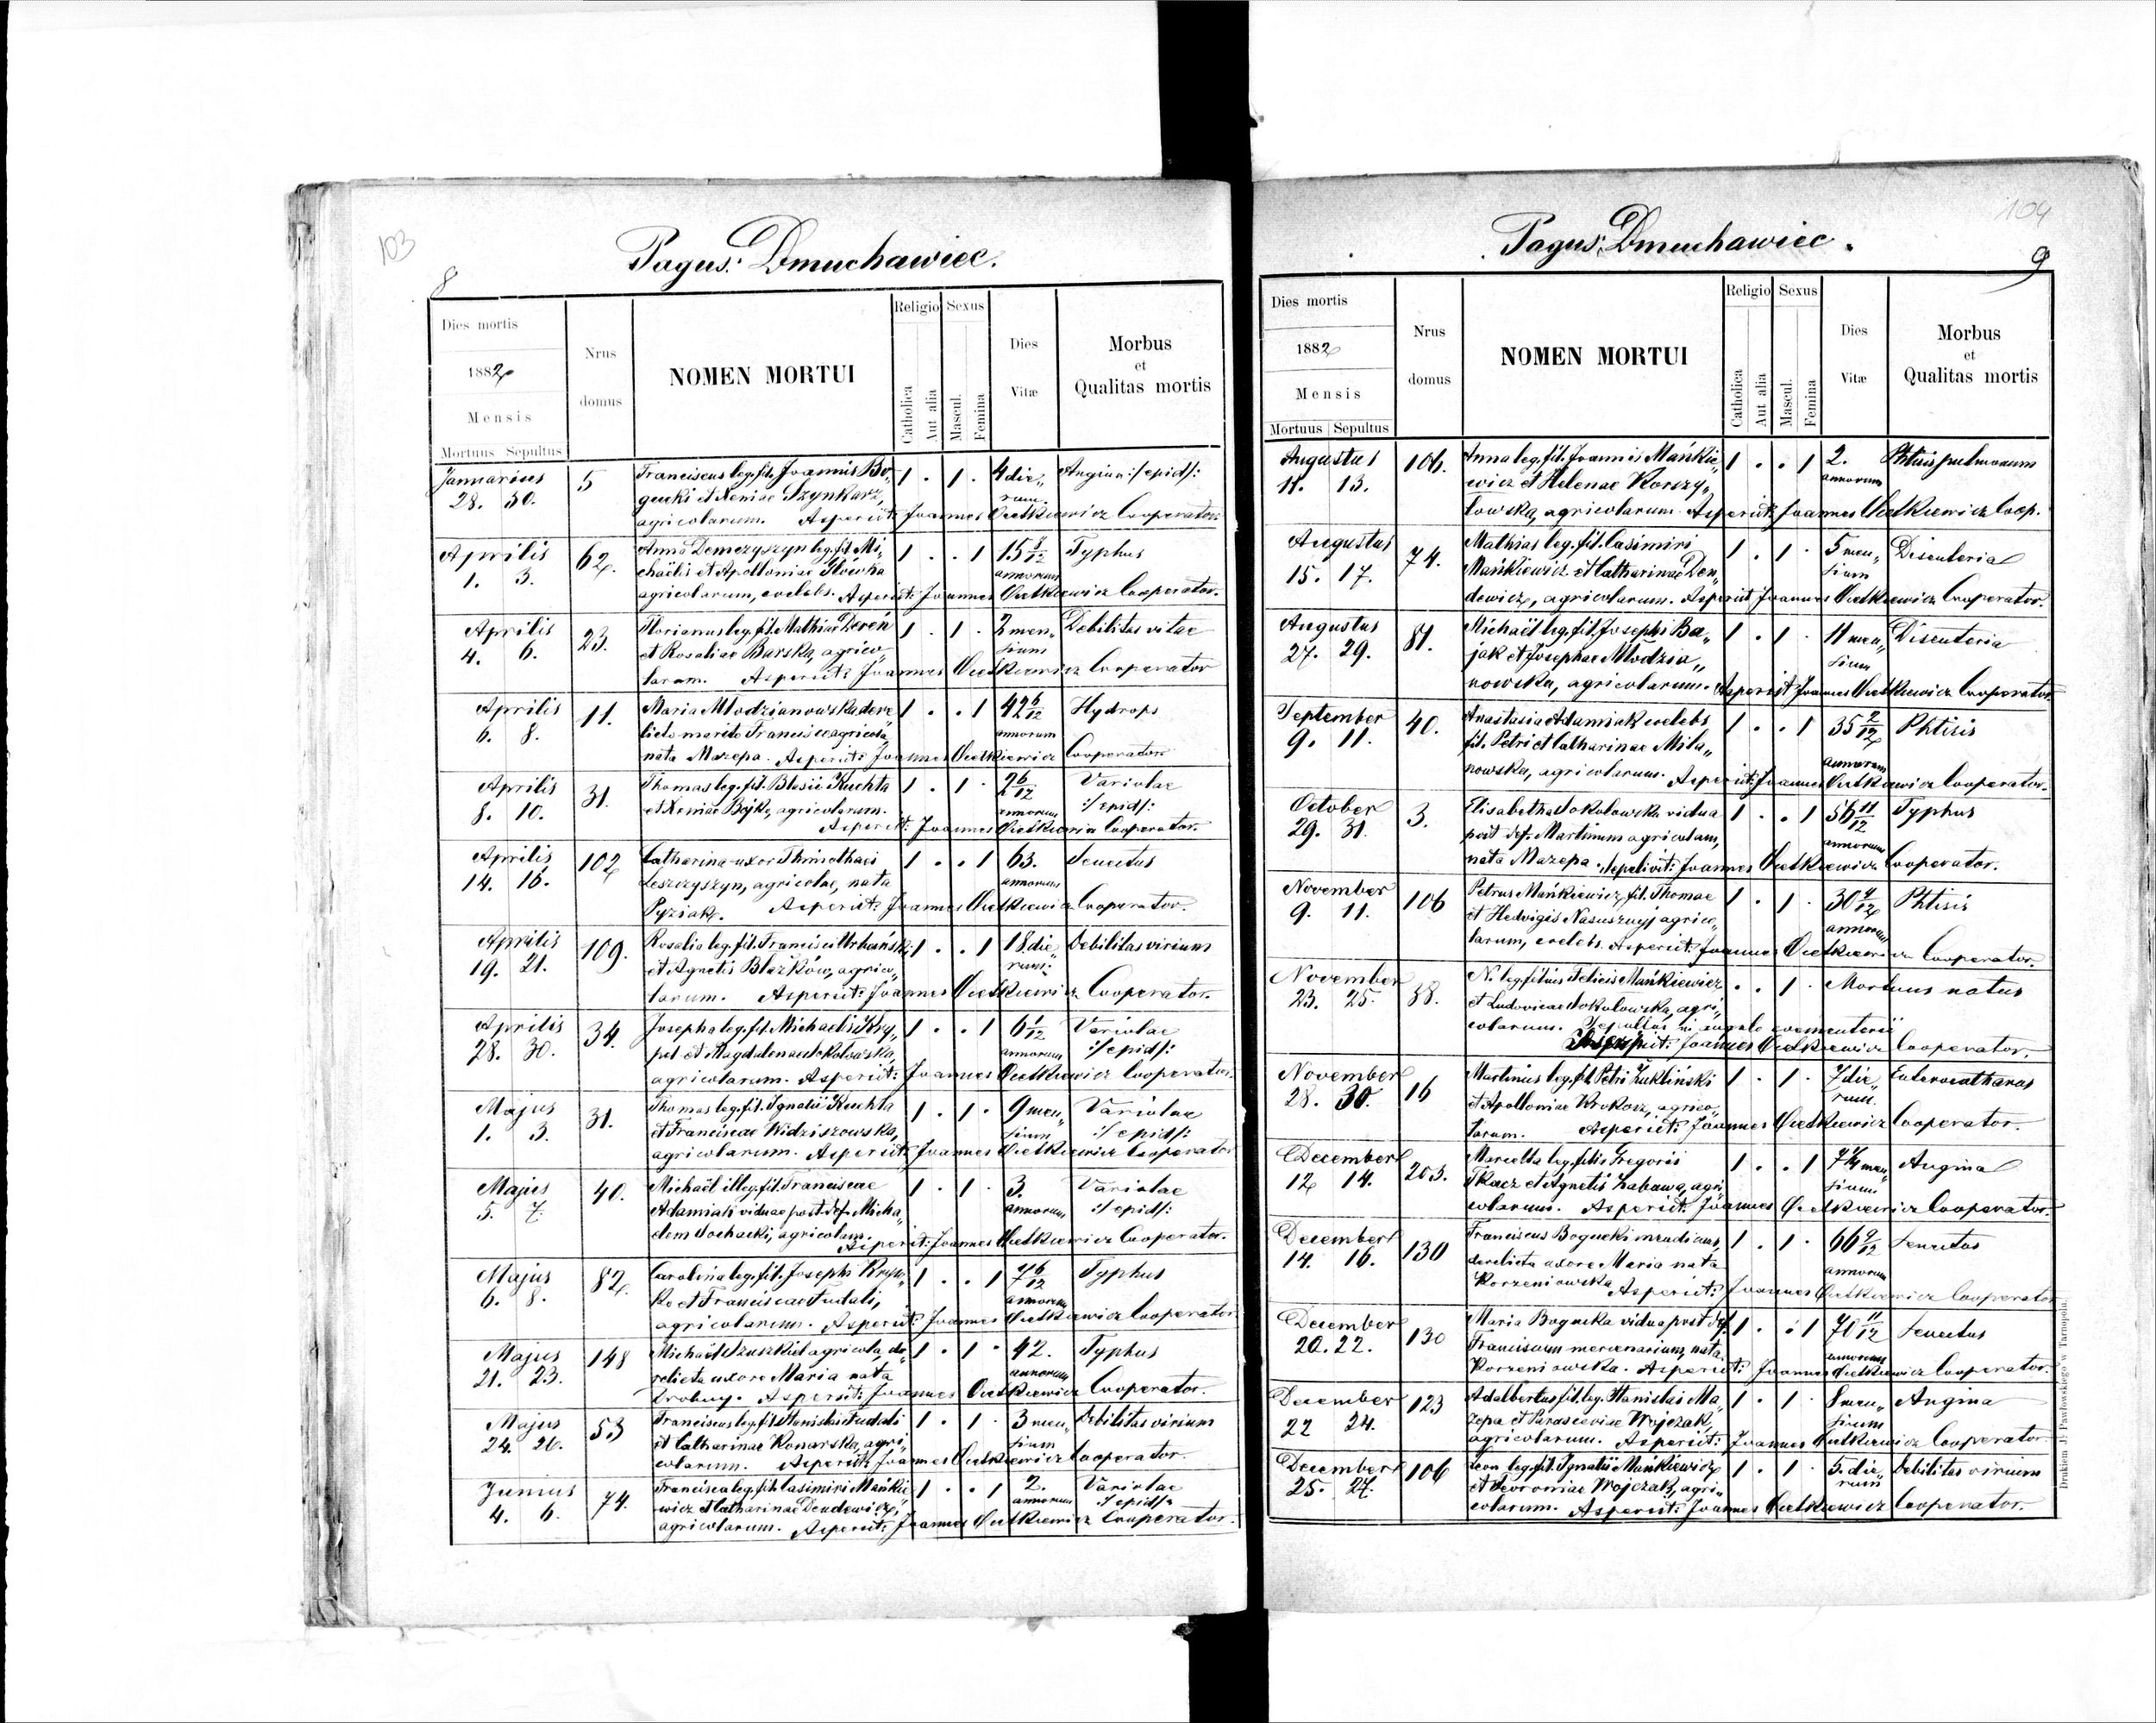 103
8
Pagus: Dmuchawiec.
Dies mortis
1882
Mensis
Mortuus Sepultus
Nrus domus
NOMEN MORTUI
Religio Sexus
Catholica Aut alia Mascul. Femina
Dies Vitæ
Morbus et Qualitas mortis
Januarius 5 Franciscus leg. fil. Joannis Bo- 1 . 1 . 4 die„ Angina :/epid/:
28. 30. gucki et Xeniae Szynkarz, rum.
agricolarum. Aspersit: Joannes Cooperator.
Aprilis 62. Anna Demczyszyn leg. fil. Mi„ 1 . . 1 15 8/12 Typhus
1. 3. chaëlis et Apolloniae annorum
agricolarum, coelebs. Aspersit: Joannes Cooperator.
Aprilis 23. Florianus leg. fil. Mathiae Dereń 1 . 1 . 2 men„ Debilitas vitae
4. 6. et Rosaliae Burska, agrico„ sium
larum. Aspersit: Joannes Cooperator
Aprilis 11. Maria Młodzianowska dere 1 . . 1 42 6/12 Hydrops
6. 8. licto marito Francisco agricola annorum
nata Mazepa. Aspersit: Joannes Cooperator
Aprilis 31. Thomas leg. fil. Blasii Kuchta 1 . 1 . 2 6/12 Variolae
8. 10. et Xeniae Byk, agricolarum. annorum :/epid/:
Aspersit: Joannes Cooperator.
Aprilis 102 Catharina uxor Thimothaei 1 . . 1 63. Senectus
14. 16. Leszczyszyn, agricolae, nata annorum
Pyziak. Aspersit: Joannes Cooperator.
Aprilis 109. Rosalia leg. fil. Francisci Urbański 1 . . 1 18 die„ Debilitas virium
19. 21. et Agnetis Błażków, agrico„ rum.
larum. Aspersit: Joannes Cooperator.
Aprilis 34. Josepha leg. fil. Michaelis Kry„ 1 . . 1 6 1/12 Variolae
28. 30. pel et Magdalenae Sokołowska, annorum :/epid/:
agricolarum. Aspersit: Joannes Cooperator.
Majus 31. Thomas leg. fil. Ignatii Kuchta 1 . 1 . 9 men„ Variolae
1. 3. et Franciscae Widziszowska, sium :/epid/:
agricolarum. Aspersit: Joannes Cooperator
Majus 40. Michaël illeg. fil. Franciscae 1 . 1 . 3. Variolae
5. 7. Adamiak viduae post def. Micha„ annorum :/epid/:
elem Sochacki, agricolam.
Aspersit: Joannes Cooperator.
Majus 82. Carolina leg. fil. Josephi 1 . . 1 7 6/12 Typhus
6. 8. ko et Franciscae Fudali, annorum
agricolarum. Aspersit: Joannes Cooperator
Majus 148 Michaël Szuszkiel agricola, de„ 1 . 1 . 42. Typhus
21. 23. relicta uxore Maria nata annorum
Drobny. Aspersit: Joannes Cooperator.
Majus 53 Franciscus leg. fil. Stanislai Fudali 1 . 1 . 3 men„ Debilitas virium
24. 26. et Catharinae Konarska, agri„ sium
colarum. Aspersit: Joannes Cooperator.
Junius 74. Francisca leg. fil. Casimiri Mańkie 1 . . 1 2. Variolae
4. 6. wicz et Catharinae Dendewicz, annorum :/epid/:
agricolarum. Aspersit: Joannes Cooperator.
104
9
Pagus: Dmuchawiec.
Dies mortis
1882
Mensis
Mortuus Sepultus
Nrus domus
NOMEN MORTUI
Religio Sexus
Catholica Aut alia Mascul. Femina
Dies Vitæ
Morbus et Qualitas mortis
Augustus 106. Anna leg. fil. Joannis Mańkie„ 1 . . 1 2. Phtisis pulmonum
11. 13. wicz et Helenae Korszy„ annorum
łowska, agricolarum. Aspersit: Joannes Coop.
Augustus 74. Mathias leg. fil. Casimiri 1 . 1 . 5 men„ Disenteria
15. 17. Mańkiewicz et Catharinae Den„ sium
dewicz, agricolarum. Aspersit Joannes Cooperator.
Augustus 81. Michaël leg. fil. Josephi Ba„ 1 . 1 . 11 men„ Disenteria
27. 29. jak et Josephae Młodzia„ sium
nowska, agricolarum. Aspersit Joannes Cooperator
September 40. Anastasia Adamiak coelebs 1 . . 1 35 2/12 Phtisis
9. 11. fil. Petri et Catharinae Mila„ annorum
nowska, agricolarum. Aspersit: Joannes Cooperator.
October 3. Elisabetha Sokołowska vidua 1 . . 1 56 11/12 Typhus
29. 31. post def. Martinum agricolam, annorum
nata Mazepa. Sepelivit: Joannes Cooperator.
November 106 Petrus Mańkiewicz, fil. Thomae 1 . 1 . 30 4/12 Phtisis
9. 11. et Hedvigis agrico„ annorum
larum, coelebs. Aspersit: Joannes Cooperator.
November 38. N. leg. filius Felicis Mańkiewicz . . 1 . Mortuus natus
23. 25. et Ludovicae Sokołowska, agri„
colarum. Sepultus in angulo coementerii
Aspersit: Joannes Cooperator.
November 16 Martinus leg. fil. Petri Żukliński 1 . 1 . 7 die„ Enterocatharus
28. 30. et Apolloniae Krokosz, agrico„ rum.
larum. Aspersit: Joannes Cooperator.
December 203. Marcella leg. filia Gregorii 1 . . 1 7 1/4 men„ Angina
12 14. Tkacz et Agnetis Zabawa, agri„ sium
colarum. Aspersit: Joannes Cooperator.
December 130 Franciscus Bogucki mendicus, 1 . 1 . 66 9/12 Senectus
14. 16. derelicta uxore Maria nata annorum
Korzeniowska Aspersit: Joannes Cooperator
December 130 Maria Bogucka vidua post def. 1 . . 1 70 11/12 Senectus
20. 22. Franciscum mercenarium, nata annorum
Korzeniowska. Aspersit: Joannes Cooperator.
December 123 Adalbertus fil. leg. Stanislai Ma„ 1 . 1 . 8 men„ Angina
22 24. zepa et Parasceviae Wojczak, sium
agricolarum. Aspersit: Joannes Cooperator
December 106 Leon leg. fil. Ignatii Mańkiewicz 1 . 1 . 5. die„ Debilitas virium
25. 27. et Fevroniae Wojczak, agri„ rum
colarum. Aspersit: Joannes Cooperator.
Drukiem J. Pawłowskiego w Tarnopolu.